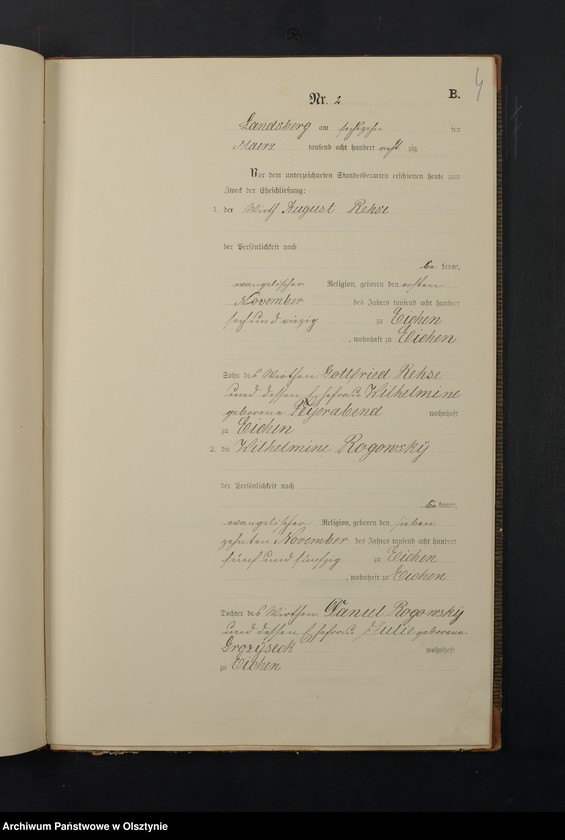 4
Nr. 2
B.
Landsberg am sechszehn ten
Maerz tausend acht hundert acht zig
Vor dem unterzeichneten Standesbeamten erschienen heute zum
Zweck der Eheschließung:
1. der Wirth August Rehse
der Persönlichkeit nach
be kannt,
evangelischer Religion, geboren den ersten
November des Jahrs tausend acht hundert
sechs und vierzig zu Eichen
, wohnhaft zu Eichen
Sohn des Wirthen Gottfried Rehse
und dessen Ehefrau Wilhelmine
geborene Feijerabend wohnhaft
zu Eichen
2. die Wilhelmine Rogowskÿ
der Persönlichkeit nach
be kannt,
evangelischer Religion, geboren den sieben
zehnten November des Jahrs tausend acht hundert
fünf und fünfzig zu Eichen
, wohnhaft zu Eichen
Tochter des Wirthen Daniel Rogowskÿ
und dessen Ehefrau geborene
wohnhaft
zu Eichen
Archiwum Państwowe w Olsztynie